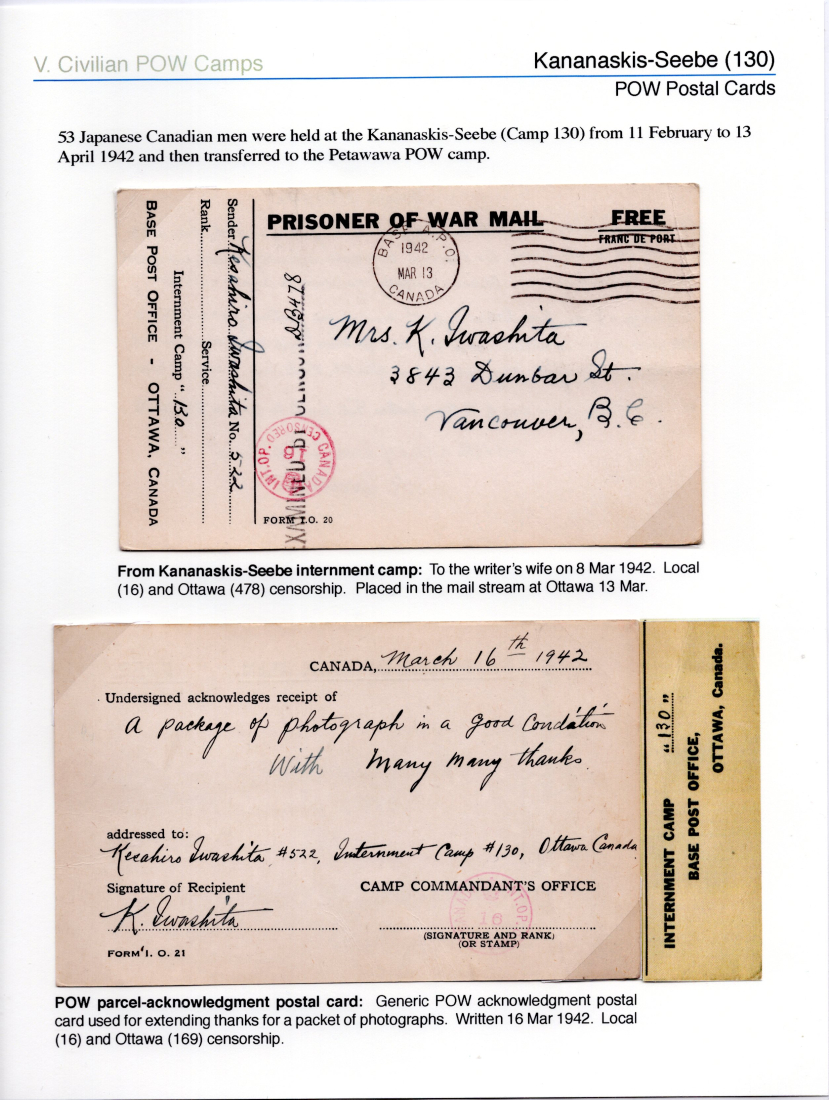 V. Civilian POW Camps
Kananaskis-Seebe (130)
POW Postal Cards
53 Japanese Canadian men were held at the Kananaskis-Seebe (Camp 130) from 11 February to 13
April 1942 and then transferred to the Petawawa POW camp.
PRISONER OF WAR MAIL
FREE
FRANC DE PORT
BASE A.P.O.
1942
MAR 13
CANADA
Mrs. K. Iwashita
3843 Dunbar St.
Vancouver, B.C.
Sender Kesahiro Iwashita No. 522
Rank Service
Internment Camp "130"
BASE POST OFFICE - OTTAWA, CANADA
EXAMINED BY
478
INT.OP. CANADA CENSORED
16
FORM I.O. 20
From Kananaskis-Seebe internment camp: To the writer's wife on 8 Mar 1942. Local
(16) and Ottawa (478) censorship. Placed in the mail stream at Ottawa 13 Mar.
CANADA, March 16th 1942
Undersigned acknowledges receipt of
A package of photograph in a good Condation
With Many many thanks.
addressed to:
Kesahiro Iwashita #522, Internment Camp #130, Ottawa Canada
Signature of Recipient
CAMP COMMANDANT'S OFFICE
K. Iwashita
INT.OP.
16
(SIGNATURE AND RANK)
(OR STAMP)
FORM I. O. 21
INTERNMENT CAMP "130"
BASE POST OFFICE,
OTTAWA, Canada.
POW parcel-acknowledgment postal card: Generic POW acknowledgment postal
card used for extending thanks for a packet of photographs. Written 16 Mar 1942. Local
(16) and Ottawa (169) censorship.